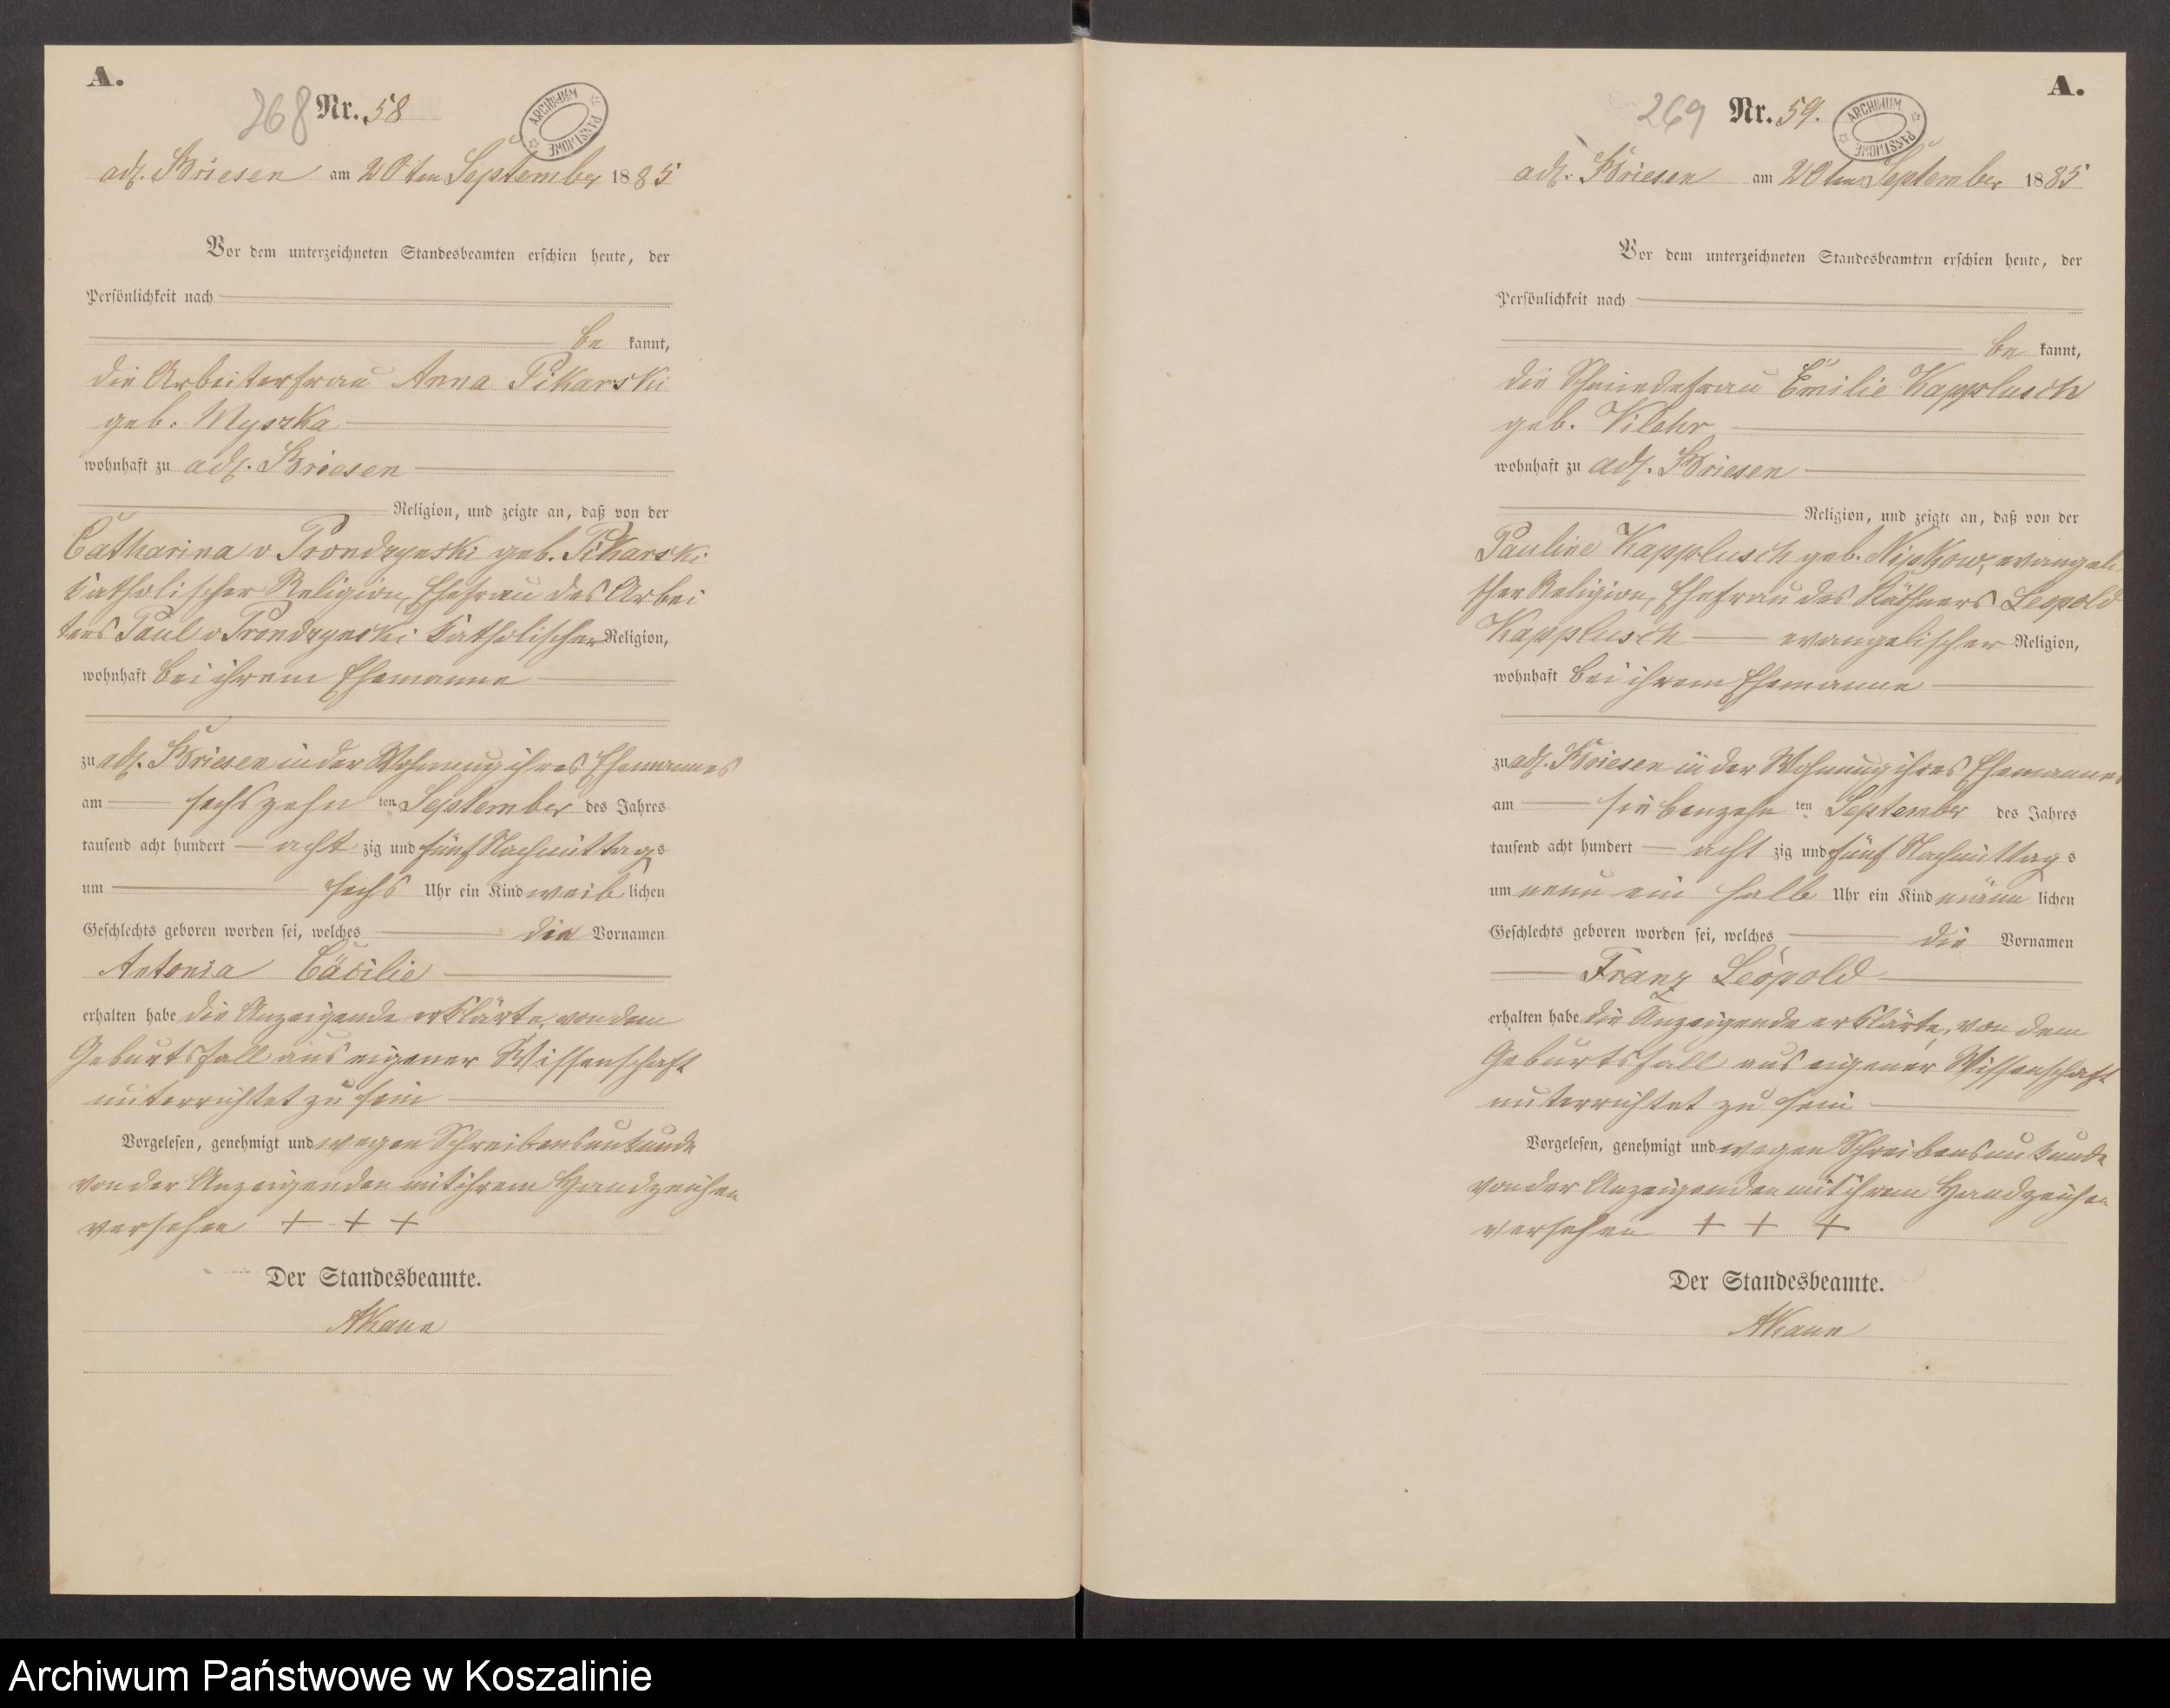 A.
268 Nr. 58
ARCHIWUM PAŃSTWOWE
adl. Briesen am 20ten September 1885
Vor dem unterzeichneten Standesbeamten erschien heute, der
Persönlichkeit nach
be kannt,
die Arbeiterfrau Anna Pikarski
geb. Myszka
wohnhaft zu adl. Briesen
Religion, und zeigte an, daß von der
Catharina v Prondzynski geb. Pikarski
katholischer Religion, Ehefrau des Arbei
ters Paul v Prondzynski katholischer Religion,
wohnhaft bei ihrem Ehemanne
zu adl. Briesen in der Wohnung ihres Ehemannes
am sechszehn ten September des Jahres
tausend acht hundert acht zig und fünf Nachmittags
um sechs Uhr ein Kind weib lichen
Geschlechts geboren worden sei, welches die Vornamen
Antonia Cäcilie
erhalten habe die Anzeigende erklärte, von dem
Geburtsfall aus eigener Wissenschaft
unterrichtet zu sein
Vorgelesen, genehmigt und wegen Schreibensunkunde
von der Anzeigenden mit ihrem Handzeichen
versehen + + +
Der Standesbeamte.
A.
269 Nr. 59.
ARCHIWUM PAŃSTWOWE
adl. Briesen am 20ten September 1885
Vor dem unterzeichneten Standesbeamten erschien heute, der
Persönlichkeit nach
be kannt,
die Schmiedefrau Emilie Kapplusch
geb.
wohnhaft zu adl. Briesen
Religion, und zeigte an, daß von der
Pauline Kapplusch geb. Nipkow, evangeli
scher Religion, Ehefrau des Käthners Leopold
Kapplusch evangelischer Religion,
wohnhaft bei ihrem Ehemanne
zu adl. Briesen in der Wohnung ihres Ehemannes
am siebenzehn ten September des Jahres
tausend acht hundert acht zig und fünf Nachmittags
um neun ein halb Uhr ein Kind männ lichen
Geschlechts geboren worden sei, welches die Vornamen
Franz Leopold
erhalten habe die Anzeigende erklärte, von dem
Geburtsfall aus eigener Wissenschaft
unterrichtet zu sein
Vorgelesen, genehmigt und wegen Schreibensunkunde
von der Anzeigenden mit ihrem Handzeichen
versehen + + +
Der Standesbeamte.
Archiwum Państwowe w Koszalinie